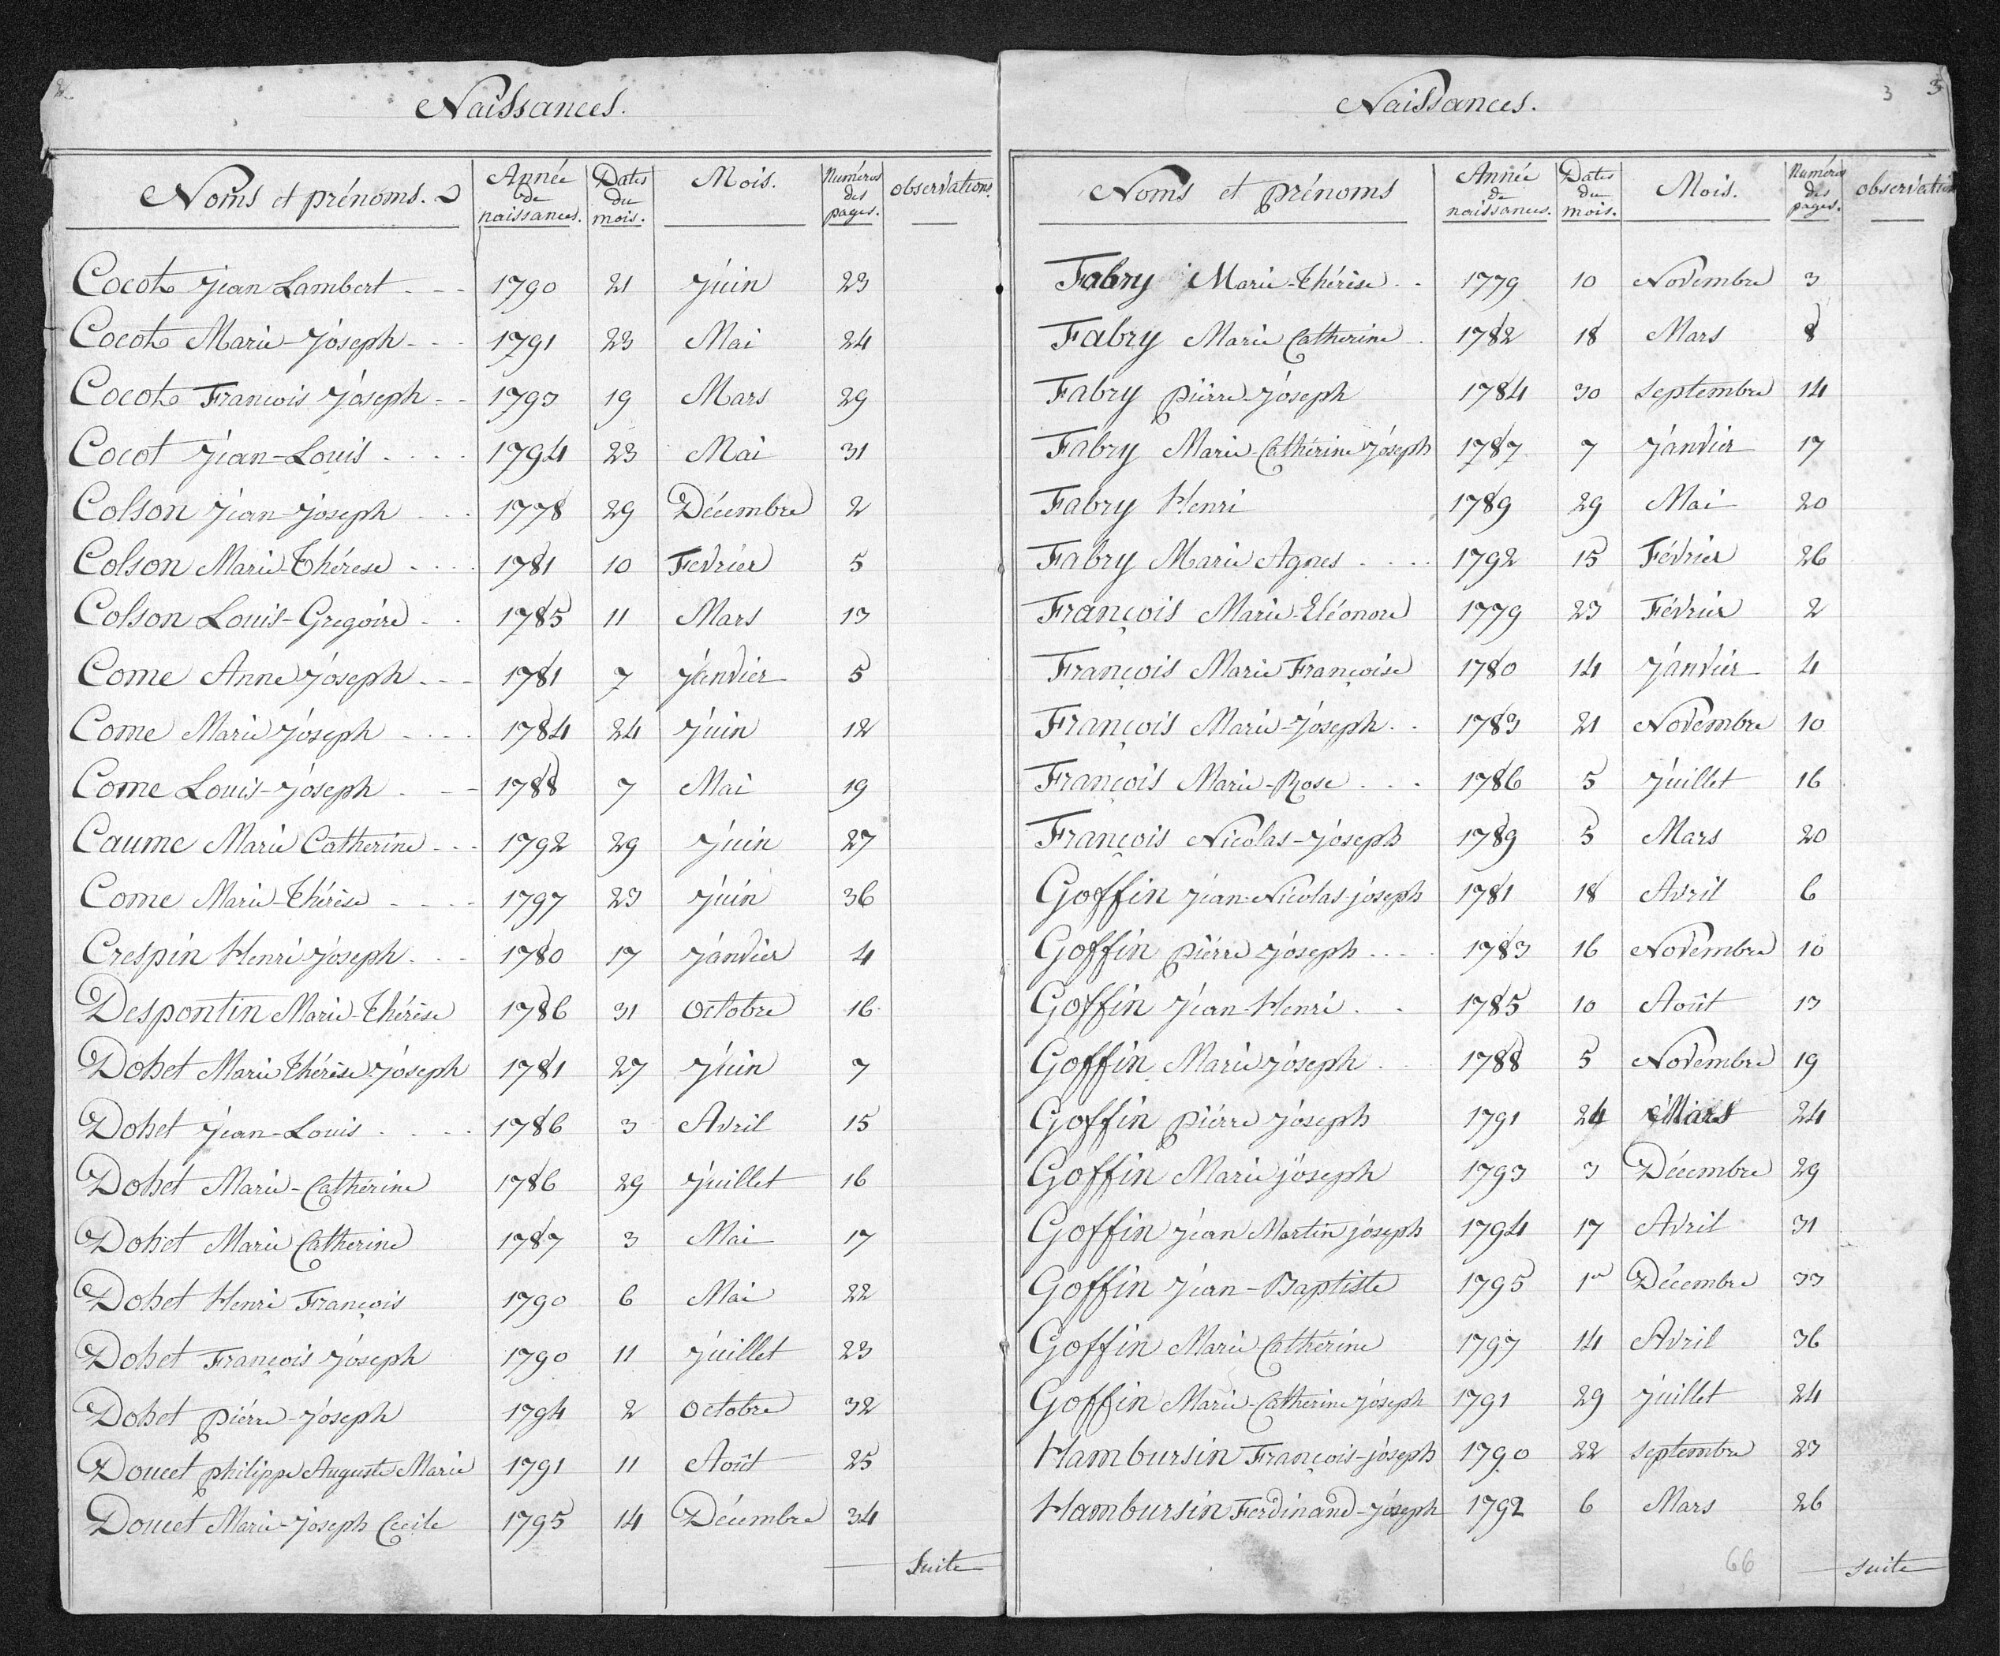 2
Naissances.
Noms et prénoms. Année de naissances. Dates du mois. Mois. Numéros des pages. observations.
Cocot Jean Lambert 1790 21 Juin 23
Cocot Marie-Joseph 1791 23 Mai 24
Cocot François Joseph 1793 19 Mars 29
Cocot Jean-Louis 1794 23 Mai 31
Colson Jean-Joseph 1778 29 Décembre 2
Colson Marie-Thérèse 1781 10 Fevrier 5
Colson Louis-Gregoire 1785 11 Mars 13
Come Anne Joseph 1781 7 Janvier 5
Come Marie Joseph 1784 24 Juin 12
Come Louis-Joseph 1788 7 Mai 19
Caume Marie Catherine 1792 29 Juin 27
Come Marie-Thérèse 1797 23 Juin 36
Crespin Henri Joseph 1780 17 Janvier 4
Despontin Marie-Thérèse 1786 31 Octobre 16
Dohet Marie Thérèse Joseph 1781 27 Juin 7
Dohet Jean-Louis 1786 3 Avril 15
Dohet Marie-Cathérine 1786 29 Juillet 16
Dohet Marie Catherine 1787 3 Mai 17
Dohet Henri François 1790 6 Mai 22
Dohet François Joseph 1790 11 Juillet 23
Dohet Piérre-Joseph 1794 2 Octobre 32
Doucet Philippe Auguste Marie 1791 11 Août 25
Doucet Marie-Joseph Cecile 1795 14 Décembre 34
Suite
3 3
Naissances.
Noms et prénoms Année de naissances. Dates du mois. Mois. Numéros des pages. observation
Fabry Marie-Thérèse 1779 10 Novembre 3
Fabry Marie Catherine 1782 18 Mars 8
Fabry Piérre-Joseph 1784 30 Septembre 14
Fabry Marie-Cathérine Joseph 1787 7 Janvier 17
Fabry Henri 1789 29 Mai 20
Fabry Marie Agnes 1792 15 Février 26
François Marie-Eléonore 1779 23 Février 2
François Marie Françoise 1780 14 Janvier 4
François Marie-Joseph 1783 21 Novembre 10
François Marie-Rose 1786 5 Juillet 16
François Nicolas-Joseph 1789 5 Mars 20
Goffin Jean-Nicolas-Joseph 1781 18 Avril 6
Goffin Piérre Joseph 1783 16 Novembre 10
Goffin Jean-Henri 1785 10 Août 13
Goffin Marie Joseph 1788 5 Novembre 19
Goffin Piérre Joseph 1791 24 Mars 24
Goffin Marie Joseph 1793 3 Décembre 29
Goffin Jean Martin Joseph 1794 17 Avril 31
Goffin Jean-Baptiste 1795 1er Décembre 33
Goffin Marie Cathérine 1797 14 Avril 36
Goffin Marie-Catherine Joseph 1791 29 Juillet 24
Hambursin François-Joseph 1790 22 Septembre 23
Hambursin Ferdinand-Joseph 1792 6 Mars 26
66
Suite